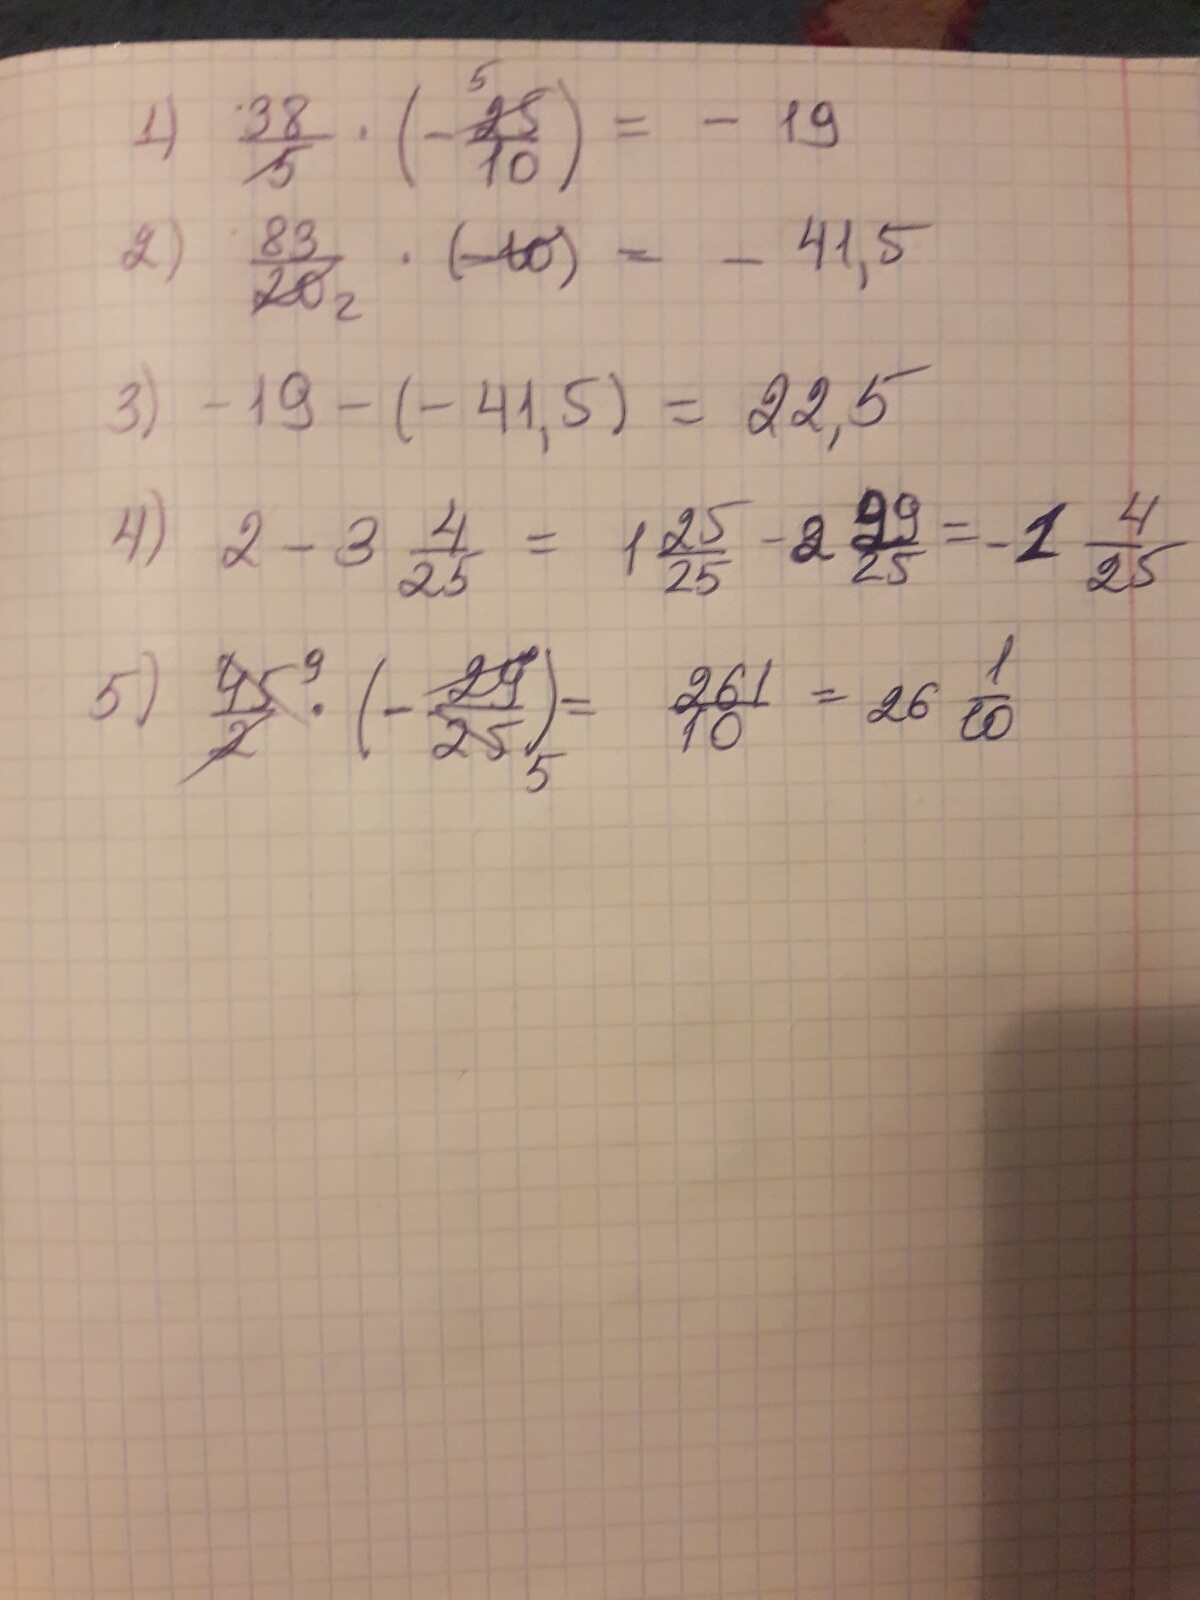 1) 38/5 · (-25/10) 5 = - 19
2) 83/20 2 · (-10) = - 41,5
3) -19 - (- 41,5) = 22,5
4) 2 - 3 4/25 = 1 25/25 - 2 29/25 = -1 4/25
5) 45/2 9 · (- 29/25) 5 = 261/10 = 26 1/10